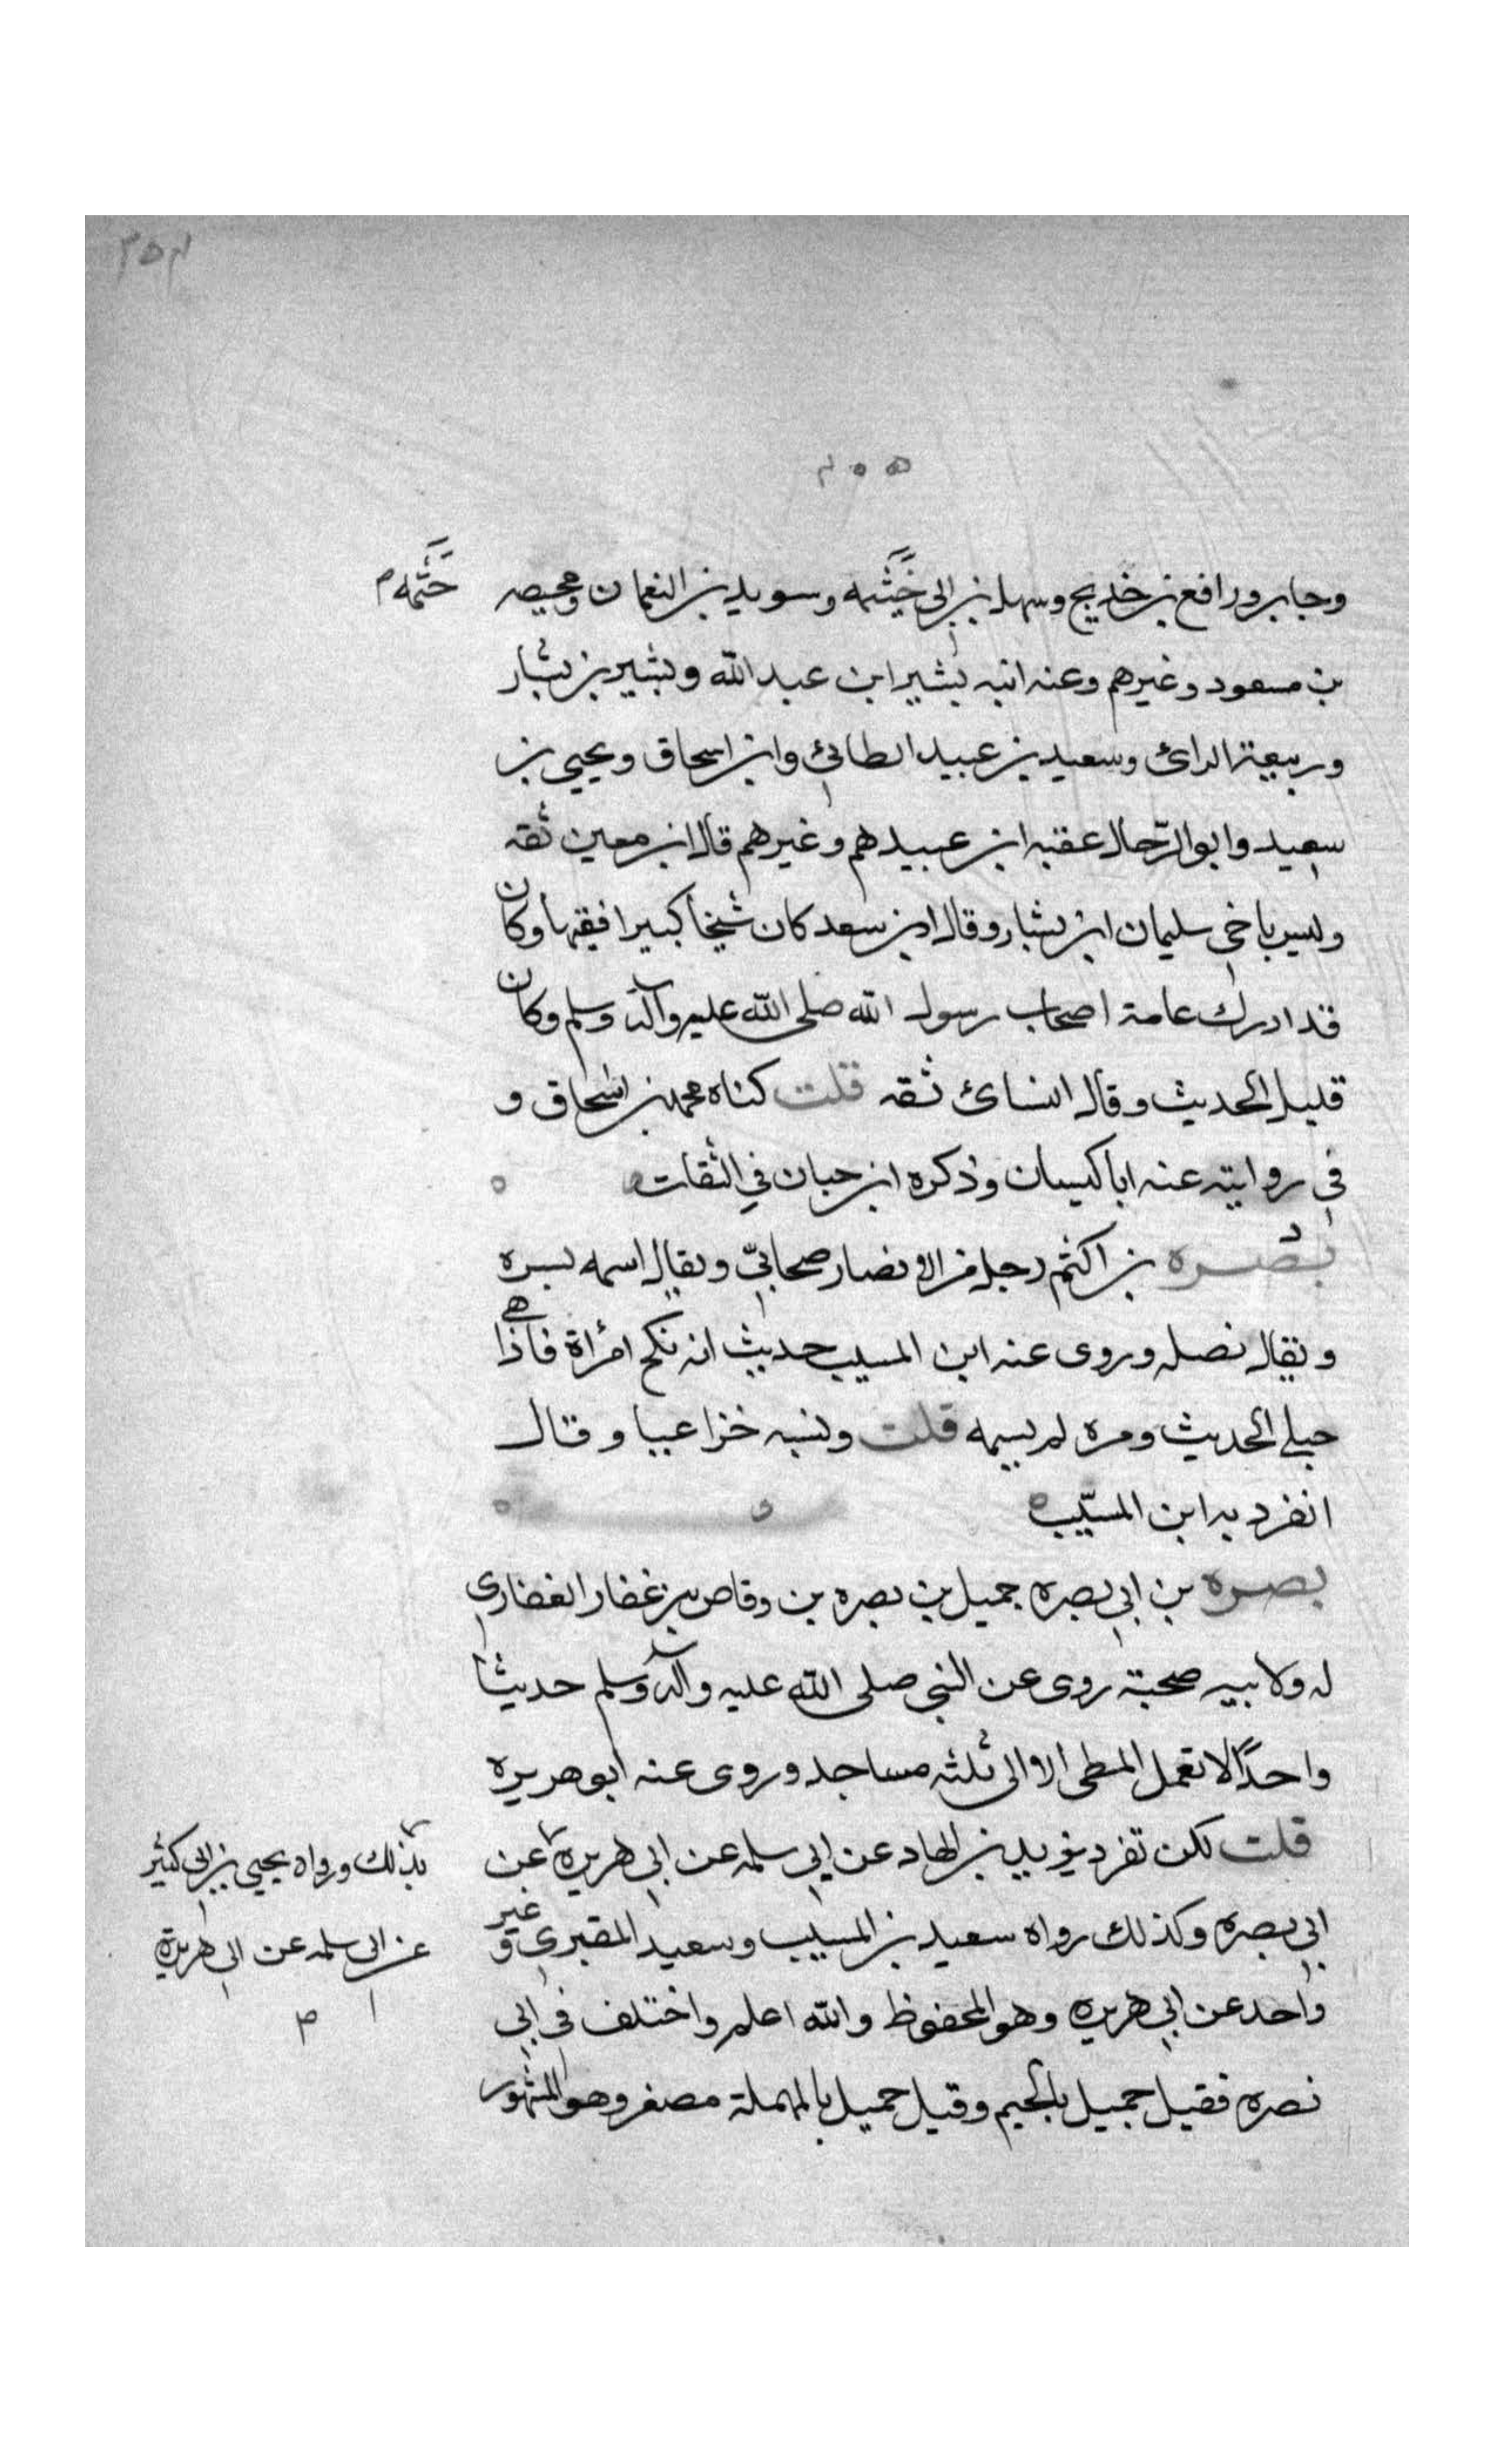 وجابر ورافع بن خديج وسهل بن ابى خَيْثَمه وسويد بن النعمان ومحيصه
حَثَمه م
بن مسعود وغيرهم وعنه ابنه بشير ابن عبد الله وبشير بن بشار
وربيعة الراى وسعيد بن عبيد الطائى وابن اسحاق ويحيى بن
سعيد وابو الرّحال عقبه ابن عبيدهم وغيرهم قال ابن معين ثقه
وليس باخى سليمان ابن بشار وقال ابن سعد كان شيخاً كبيرا فقيهاً وكان
قد ادرك عامة اصحاب رسول الله صلى الله عليه وآله وسلم وكان
قليل الحديث وقال النسائ ثقه قلت كناه محمد بن اسحاق و
في روايته عنه ابا كيسان وذكره ابن حبان في الثقات
بصره بن اكثم رجل من الانصار صحابيّ ويقال اسمه بسره
ويقال نضله وروى عنه ابن المسيب حديث انه نكح امرأة فاذا هي
حبلى الحديث ومره لم يسمه قلت ونسبه خزاعيا وقال
انفرد به ابن المسيّب
بصره بن ابي بصره جميل بن بصره بن وقاص بن غفار الغفاري
له ولابيه صحبة روى عن النبي صلى الله عليه وآله وسلم حديثا
واحدًا لا تعمل المطى الا الى ثلثه مساجد وروى عنه ابو هريره
قلت لكن تفرد يزيد بن الهاد عن ابي سلمه عن ابى هريره عن
بذلك ورواه يحيى بن ابى كثير
عن ابى سلمه عن ابى هريرة
م
ابي بصره وكذلك رواه سعيد بن المسيب وسعيد المقبري وغير
واحد عن ابي هريره وهو المحفوظ والله اعلم واختلف في ابي
نصره فقيل جميل بالجيم وقيل حميل بالمهملة مصغر وهو المشهور